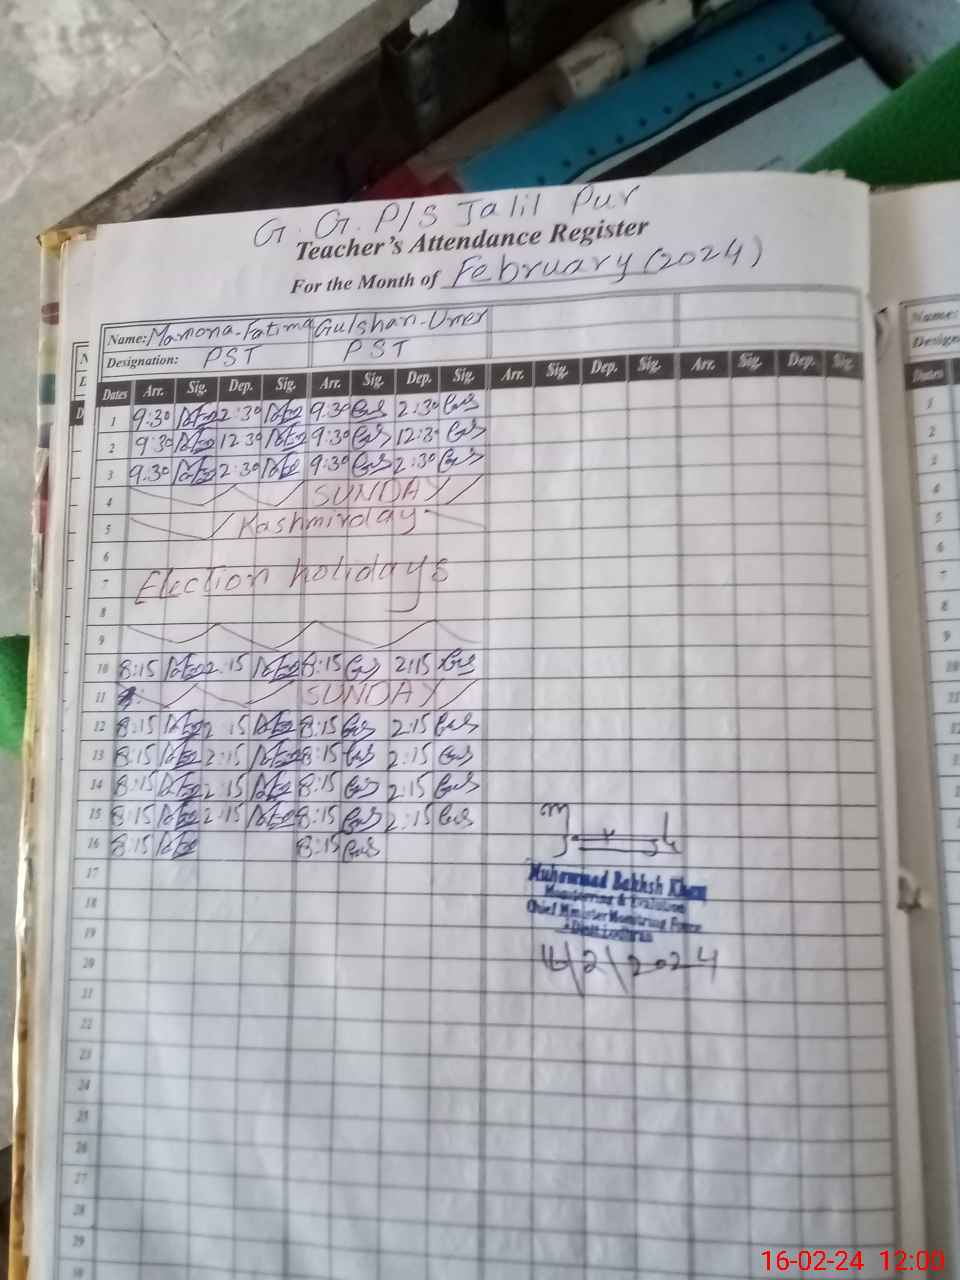 G. G. P/S Jalil Pur
Teacher's Attendance Register
For the Month of February (2024)
Name: Mamona-Fatima Gulshan-Umer
Designation: PST PST
Dates Arr. Sig. Dep. Sig. Arr. Sig. Dep. Sig. Arr. Sig. Dep. Sig. Arr. Sig. Dep. Sig.
1 9:30 2:30 9:30 2:30
2 9:30 12:30 9:30 12:30
3 9:30 2:30 9:30 2:30
4 SUNDAY
5 Kashmirday
6
7 Election holidays
8
9
10 8:15 2:15 8:15 2:15
11 SUNDAY
12 8:15 2:15 8:15 2:15
13 8:15 2:15 8:15 2:15
14 8:15 2:15 8:15 2:15
15 8:15 2:15 8:15 2:15
16 8:15 8:15
17
Muhammad Bakhsh Khan
18
Monitoring & Evaluation
Chief Minister Monitring Force
19
Distt Lodhran
20
16/2/2024
21
22
23
24
25
26
27
28
29
30
Name:
Design
Dates
1
2
3
4
5
6
7
8
9
10
11
12
13
14
15
16-02-24 12:00